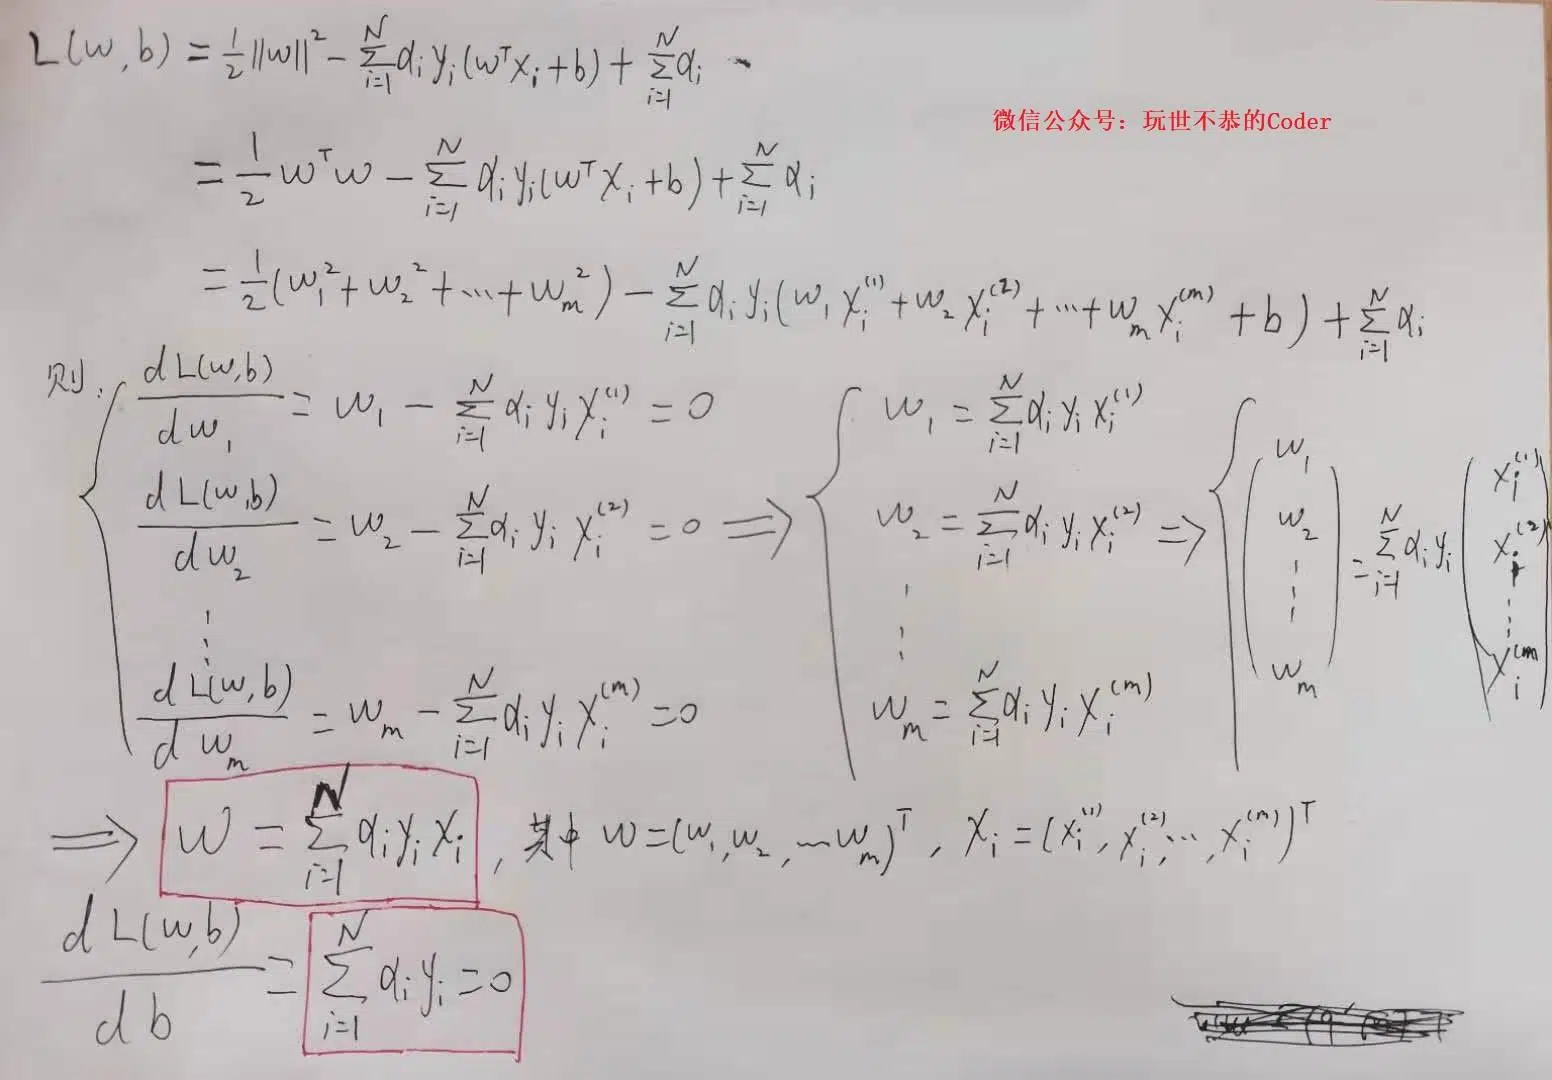 L(w,b) = 1/2 ||w||² - Σ_{i=1}^{N} α_i y_i (w^T x_i + b) + Σ_{i=1}^{N} α_i
微信公众号：玩世不恭的Coder
= 1/2 w^T w - Σ_{i=1}^{N} α_i y_i (w^T x_i + b) + Σ_{i=1}^{N} α_i
= 1/2 (w_1² + w_2² + ... + w_m²) - Σ_{i=1}^{N} α_i y_i (w_1 x_i^{(1)} + w_2 x_i^{(2)} + ... + w_m x_i^{(m)} + b) + Σ_{i=1}^{N} α_i
则: { dL(w,b)/dw_1 = w_1 - Σ_{i=1}^{N} α_i y_i x_i^{(1)} = 0
dL(w,b)/dw_2 = w_2 - Σ_{i=1}^{N} α_i y_i x_i^{(2)} = 0
⋮
dL(w,b)/dw_m = w_m - Σ_{i=1}^{N} α_i y_i x_i^{(m)} = 0
⟹ { w_1 = Σ_{i=1}^{N} α_i y_i x_i^{(1)}
w_2 = Σ_{i=1}^{N} α_i y_i x_i^{(2)}
⋮
w_m = Σ_{i=1}^{N} α_i y_i x_i^{(m)}
⟹ { (w_1 w_2 ⋮ w_m) = Σ_{i=1}^{N} α_i y_i (x_i^{(1)} x_i^{(2)} ⋮ x_i^{(m)})
⟹ w = Σ_{i=1}^{N} α_i y_i x_i , 其中 w = (w_1, w_2, ... w_m)^T , x_i = (x_i^{(1)}, x_i^{(2)}, ..., x_i^{(m)})^T
dL(w,b)/db = Σ_{i=1}^{N} α_i y_i = 0